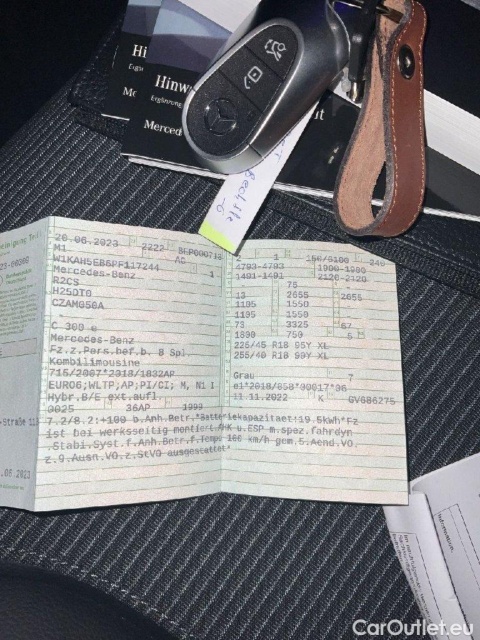 Hi
Hinw
Ergänzung
Mo
Merced
20.06.2023 2222
M1 AC 1
W1KAH5EB6PF117244
Mercedes-Benz
R2CS
H25DT0
CZAM050A
C 300 e
Mercedes-Benz
Fz.z.Pers.bef.b. 8 Spl
Kombilimousine
715/2007*2018/1832AP
EURO6;WLTP;AP;PI/CI; M, N1 I
Hybr.B/E ext.aufl.
0025 36AP 1999
2 1 150/6100 245
4793-4793 1900-1900
1491-1491 2120-2120
75
13 2655 2655
1195 1550
1195 1550
73 3325 67
1800 750 5
225/45 R18 95Y XL
255/40 R18 99Y XL
Grau 7
e1*2018/858*00017*06
11.11.2022 K GV686275
7.2/8.2:+100 b.Anh.Betr.*Batteriekapazitaet:19.5kWh*Fz
ist bei werksseitig montiert.AHK u.ESP m.spez.fahrdyn
.Stabi.Syst.f.Anh.Betr.f.Temp. 100 km/h gem.5.Aend.VO
z.9.Ausn.VO.z.StVO ausgestattet*
-Straße 11
.06.2023
CarOutlet.eu